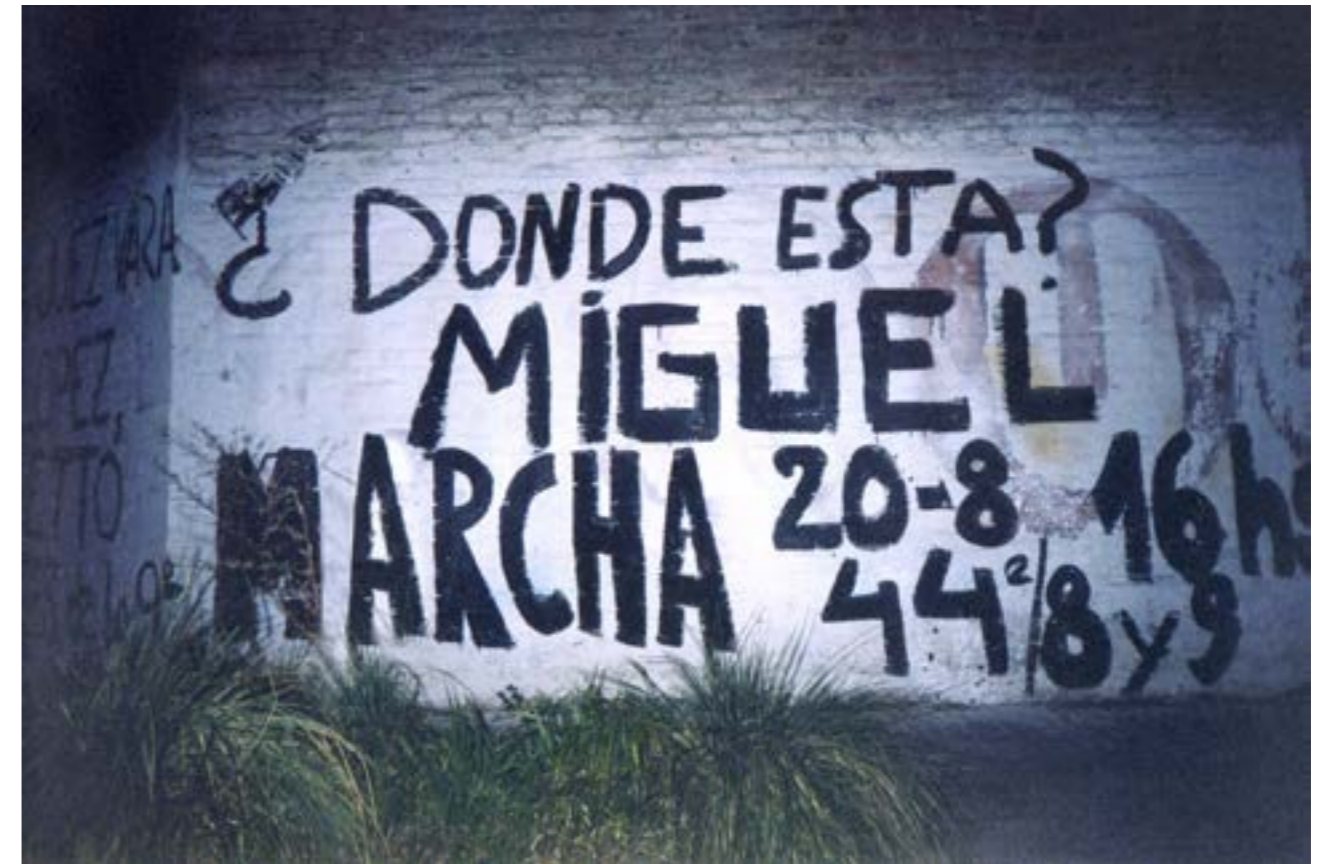 ¿DONDE ESTA?
MIGUEL
MARCHA 20-8 16hs
44 e/8 y 9